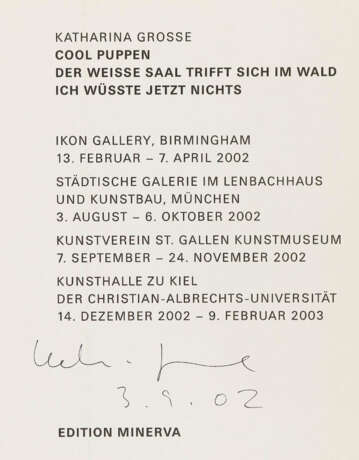 KATHARINA GROSSE
COOL PUPPEN
DER WEISSE SAAL TRIFFT SICH IM WALD
ICH WÜSSTE JETZT NICHTS
IKON GALLERY, BIRMINGHAM
13. FEBRUAR – 7. APRIL 2002
STÄDTISCHE GALERIE IM LENBACHHAUS
UND KUNSTBAU, MÜNCHEN
3. AUGUST – 6. OKTOBER 2002
KUNSTVEREIN ST. GALLEN KUNSTMUSEUM
7. SEPTEMBER – 24. NOVEMBER 2002
KUNSTHALLE ZU KIEL
DER CHRISTIAN-ALBRECHTS-UNIVERSITÄT
14. DEZEMBER 2002 – 9. FEBRUAR 2003
3.9.02
EDITION MINERVA